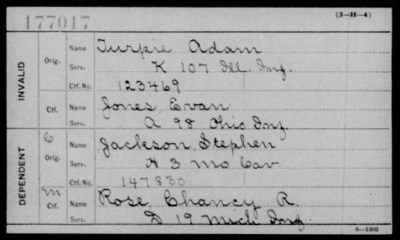 177017 (3-H-4)
INVALID
Orig. Name Turpie Adam
Serv. K 107 Ill. Inf.
Ctf. No. 123469
Ctf. Name Jones, Evan
Serv. A 98 Ohio Inf.
DEPENDENT
C Orig. Name Jackson, Stephen
Serv. H 3 Mo Cav
Ctf. No. 147830
M Ctf. Name Rose, Chancy R.
Serv. D 19 Mich Inf.